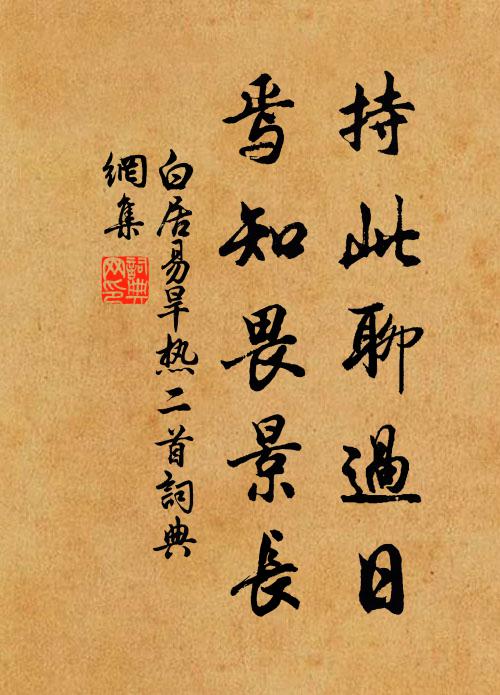 持此聊過日
焉知畏景長
白居易旱热二首詞典
網集
詞典
网印